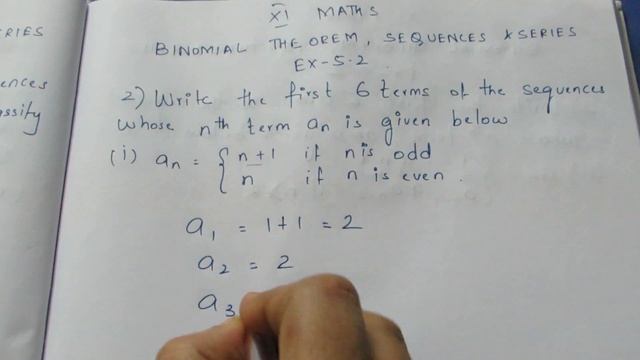 XI MATHS
BINOMIAL THEOREM, SEQUENCES & SERIES
EX-5.2
RIES
ences
ssify
2) Write the first 6 terms of the sequences
whose nth term an is given below
(i) an = { n+1 if n is odd
n if n is even.
a1 = 1+1 = 2
a2 = 2
a3